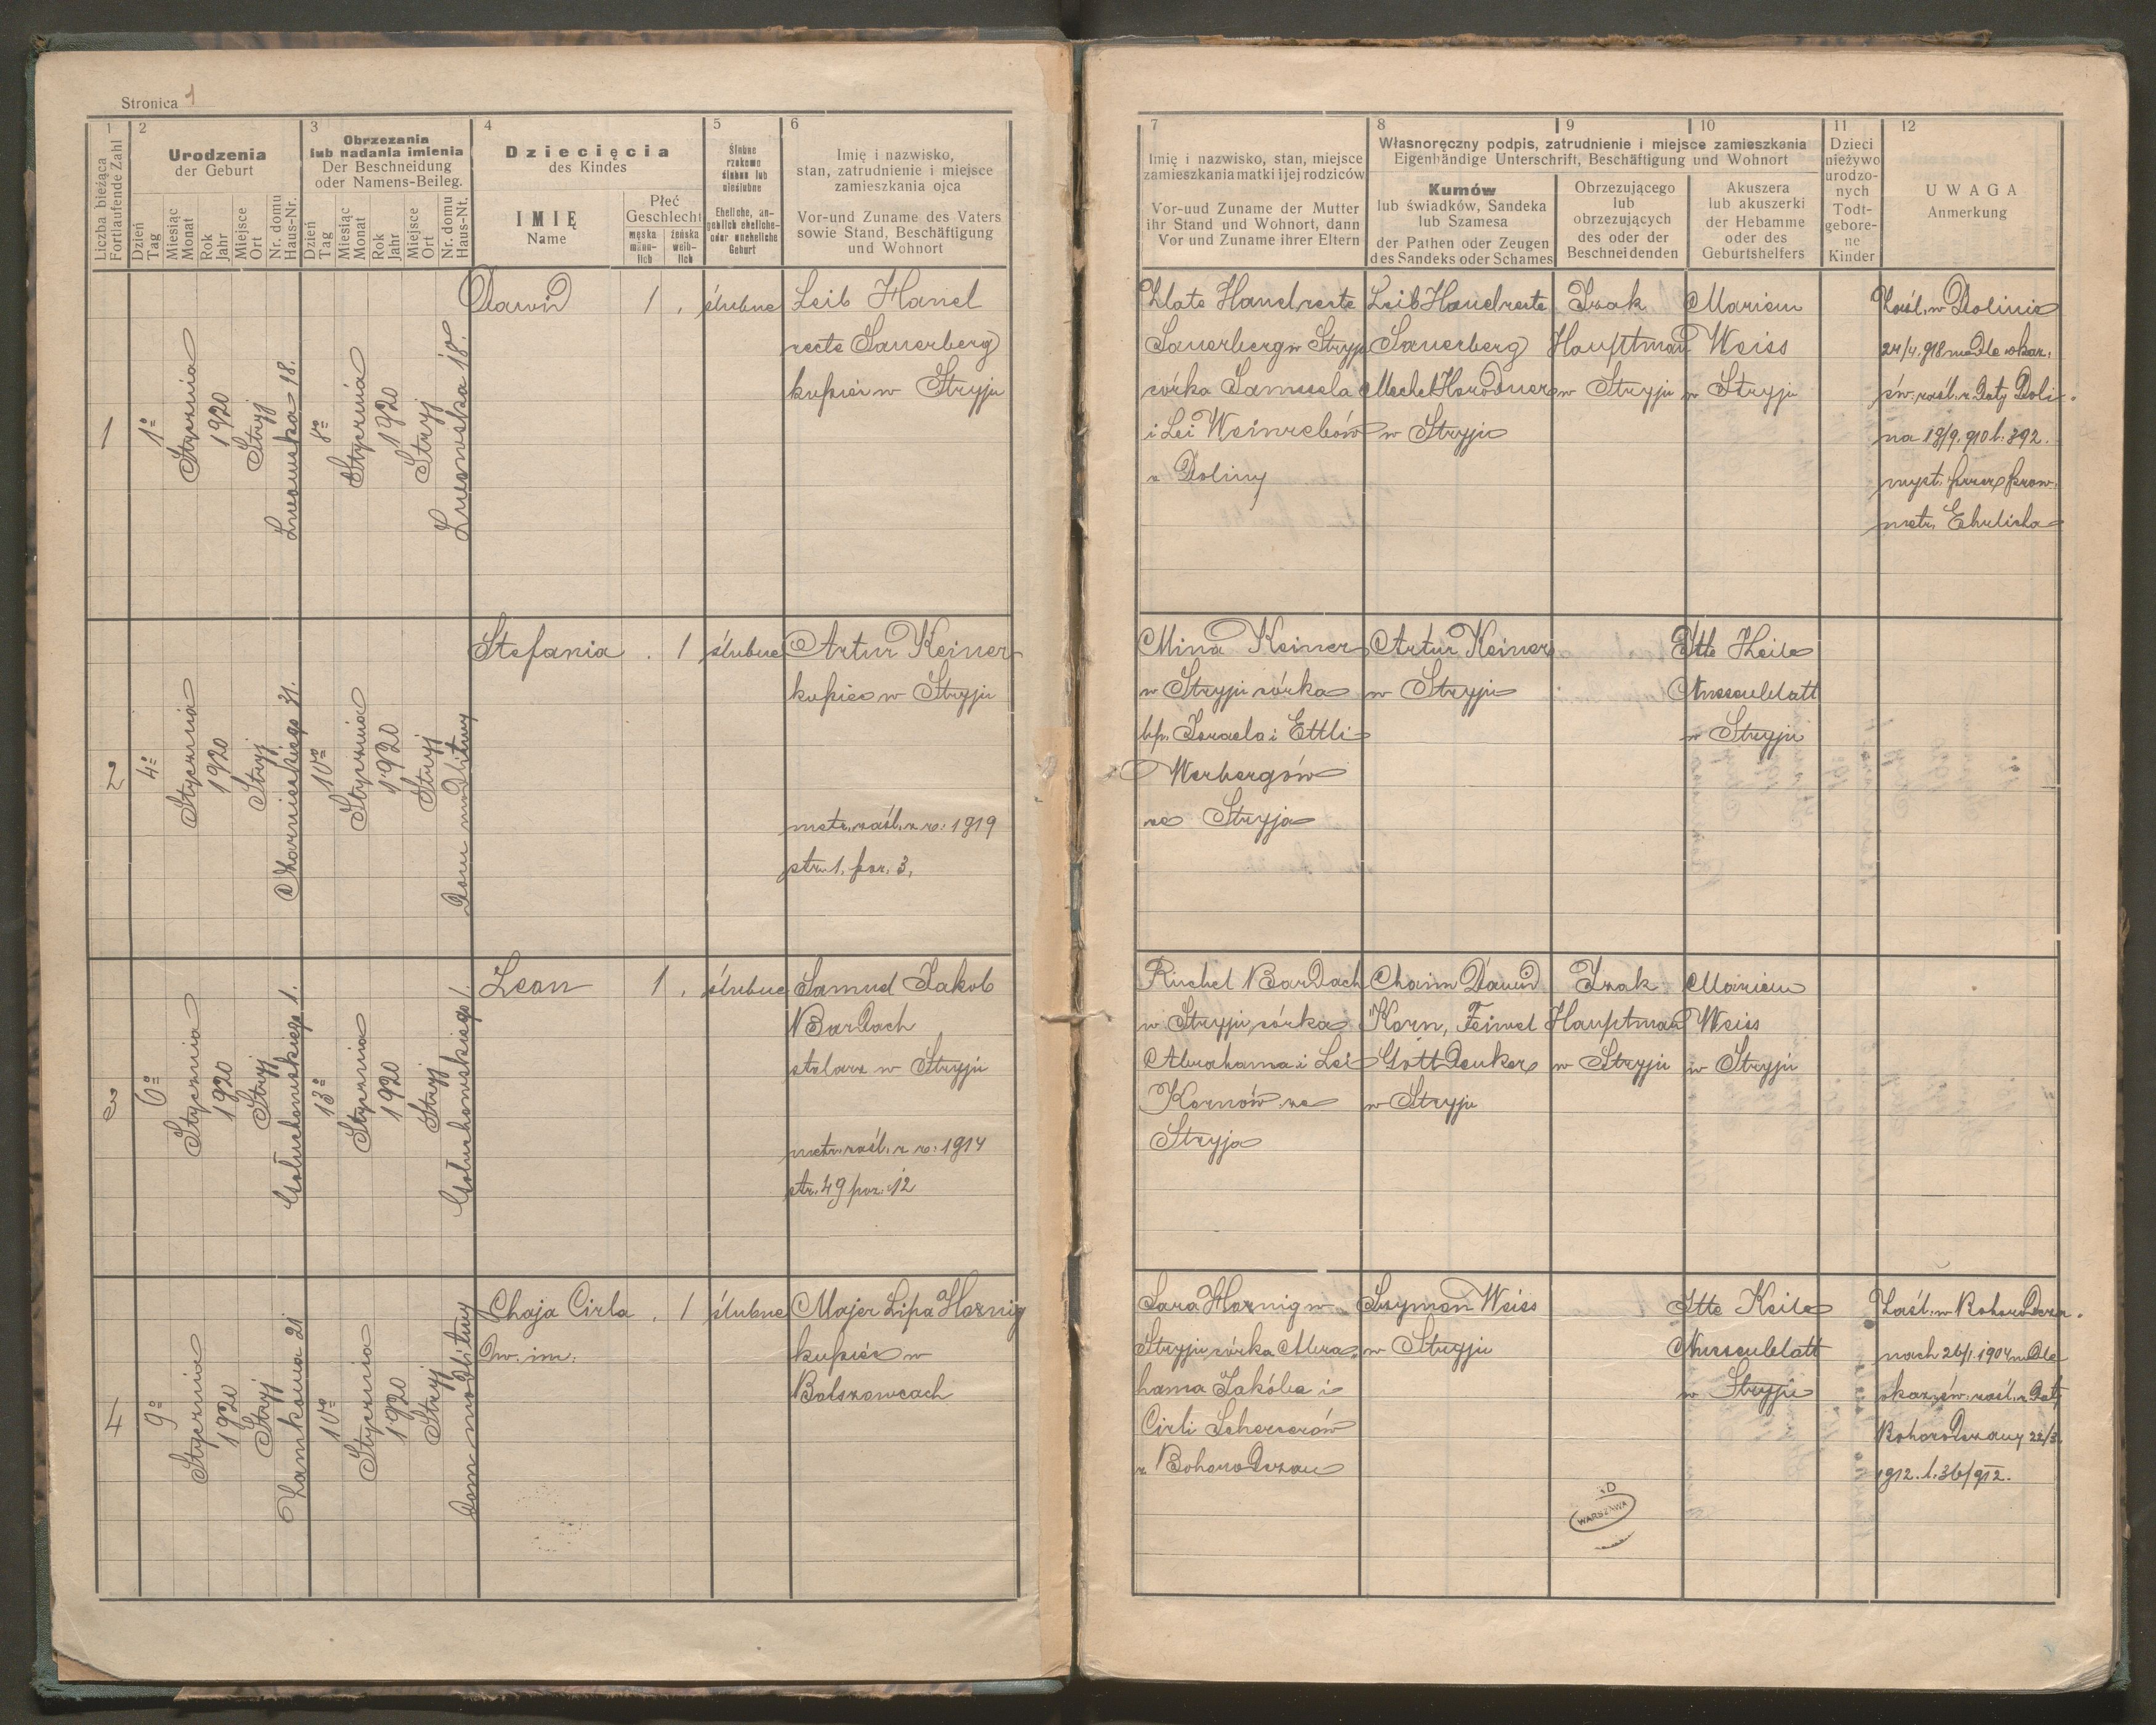 Stronica 1
1
Liczba bieżąca
Fortlaufende Zahl
2
Urodzenia
der Geburt
Dzień
Tag
Miesiąc
Monat
Rok
Jahr
Miejsce
Ort
Nr. domu
Haus-Nr.
3
Obrzezania
lub nadania imienia
Der Beschneidung
oder Namens-Beileg.
Dzień
Tag
Miesiąc
Monat
Rok
Jahr
Miejsce
Ort
Nr. domu
Haus-Nt.
4
Dziecięcia
des Kindes
IMIĘ
Name
Płeć
Geschlecht
męska
männ-
lich
żeńska
weib-
lich
5
Ślubne
rzekomo
ślubne lub
nieślubne
Eheliche, an-
geblich eheliche-
oder uneheliche
Geburt
6
Imię i nazwisko,
stan, zatrudnienie i miejsce
zamieszkania ojca
Vor-und Zuname des Vaters
sowie Stand, Beschäftigung
und Wohnort
7
Imię i nazwisko, stan, miejsce
zamieszkania matki i jej rodziców
Vor-uud Zuname der Mutter
ihr Stand und Wohnort, dann
Vor und Zuname ihrer Eltern
8
9
10
Własnoręczny podpis, zatrudnienie i miejsce zamieszkania
Eigenhändige Unterschrift, Beschäftigung und Wohnort
Kumów
lub świadków, Sandeka
lub Szamesa
der Pathen oder Zeugen
des Sandeks oder Schames
Obrzezującego
lub
obrzezujących
des oder der
Beschneidenden
Akuszera
lub akuszerki
der Hebamme
oder des
Geburtshelfers
11
Dzieci
nieżywo
urodzo-
nych
Todt-
gebore-
ne
Kinder
12
UWAGA
Anmerkung
1
1º
Stycznia
1920
Stryj
Lwowska 18.
8º
Stycznia
1920
Stryj
Lwowska 18.
Dawid
1 .
ślubne
Leib Handl
recte Sauerberg
kupiec w Stryju
Zlate Handl recte
Sauerberg w Stryju
córka Samuela
i Lei Weinrebów
z Doliny
Leib Handl recte
Sauerberg
w Stryju
Izak
Hauptman
w Stryju
Mariem
Weiss
w Stryju
Zaśl. w Dolinie
24/4. 918 wedle okaz.
św. zaśl. z daty Doli-
na 19/9. 910 l. 392.
wyst. przez prow.
metr. Ehrlicha
2
4º
Stycznia
1920
Stryj
Czarnieckiego 31.
10º
Stycznia
1920
Stryj
Dom modlitwy
Stefania
. 1
ślubne
Artur Keiner
kupiec w Stryju
metr. zaśl. z r. 1919
str. 1. poz. 3.
Mina Keiner
w Stryju córka
bp. Izraela i Ettli
Werbergów
ze Stryja
Artur Keiner
w Stryju
Itte Keile
Nussenblatt
w Stryju
3
6º
Stycznia
1920
Stryj
Gołuchowskiego 1.
13º
Stycznia
1920
Stryj
Gołuchowskiego 1.
Leon
1 .
ślubne
Samuel Jakob
Bardach
stolarz w Stryju
metr. zaśl. z r. 1914
str. 49 poz. 12
Ruchel Bardach
w Stryju, córka
Abrahama i Lei
Kornów ze
Stryja
Chaim Dawid
Korn, Feiwel
Gottdenker
w Stryju
Izak
Hauptman
w Stryju
Mariem
Weiss
w Stryju
4
9º
Stycznia
1920
Stryj
Zamkowa 21
10º
Stycznia
1920
Stryj
Dom modlitwy
Chaja Cirla
dw. im.
. 1
ślubne
Majer Lipa Hornig
kupiec w
Bolszowcach
Sara Hornig w
Stryju, córka Abra-
hama Jakóba i
Cirli Scherzerów
z Bohorodczan
Szymon Weiss
w Stryju
Itte Keile
Nussenblatt
w Stryju
Zaśl. w Bohorodcza-
nach 26/1. 1904 wedle
okaz. św. zaśl. z daty
Bohorodczany 22/3.
1912. l. 36/912.
WARSZAWA